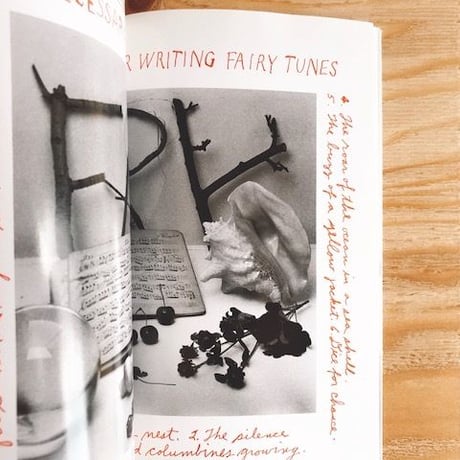 CESSA
R WRITING FAIRY TUNES
4. The roar of the ocean in a sea shell.
5. The buzz of a yellow jacket 6 Dice for chance.
nest. 2. The silence
d columbines growing.